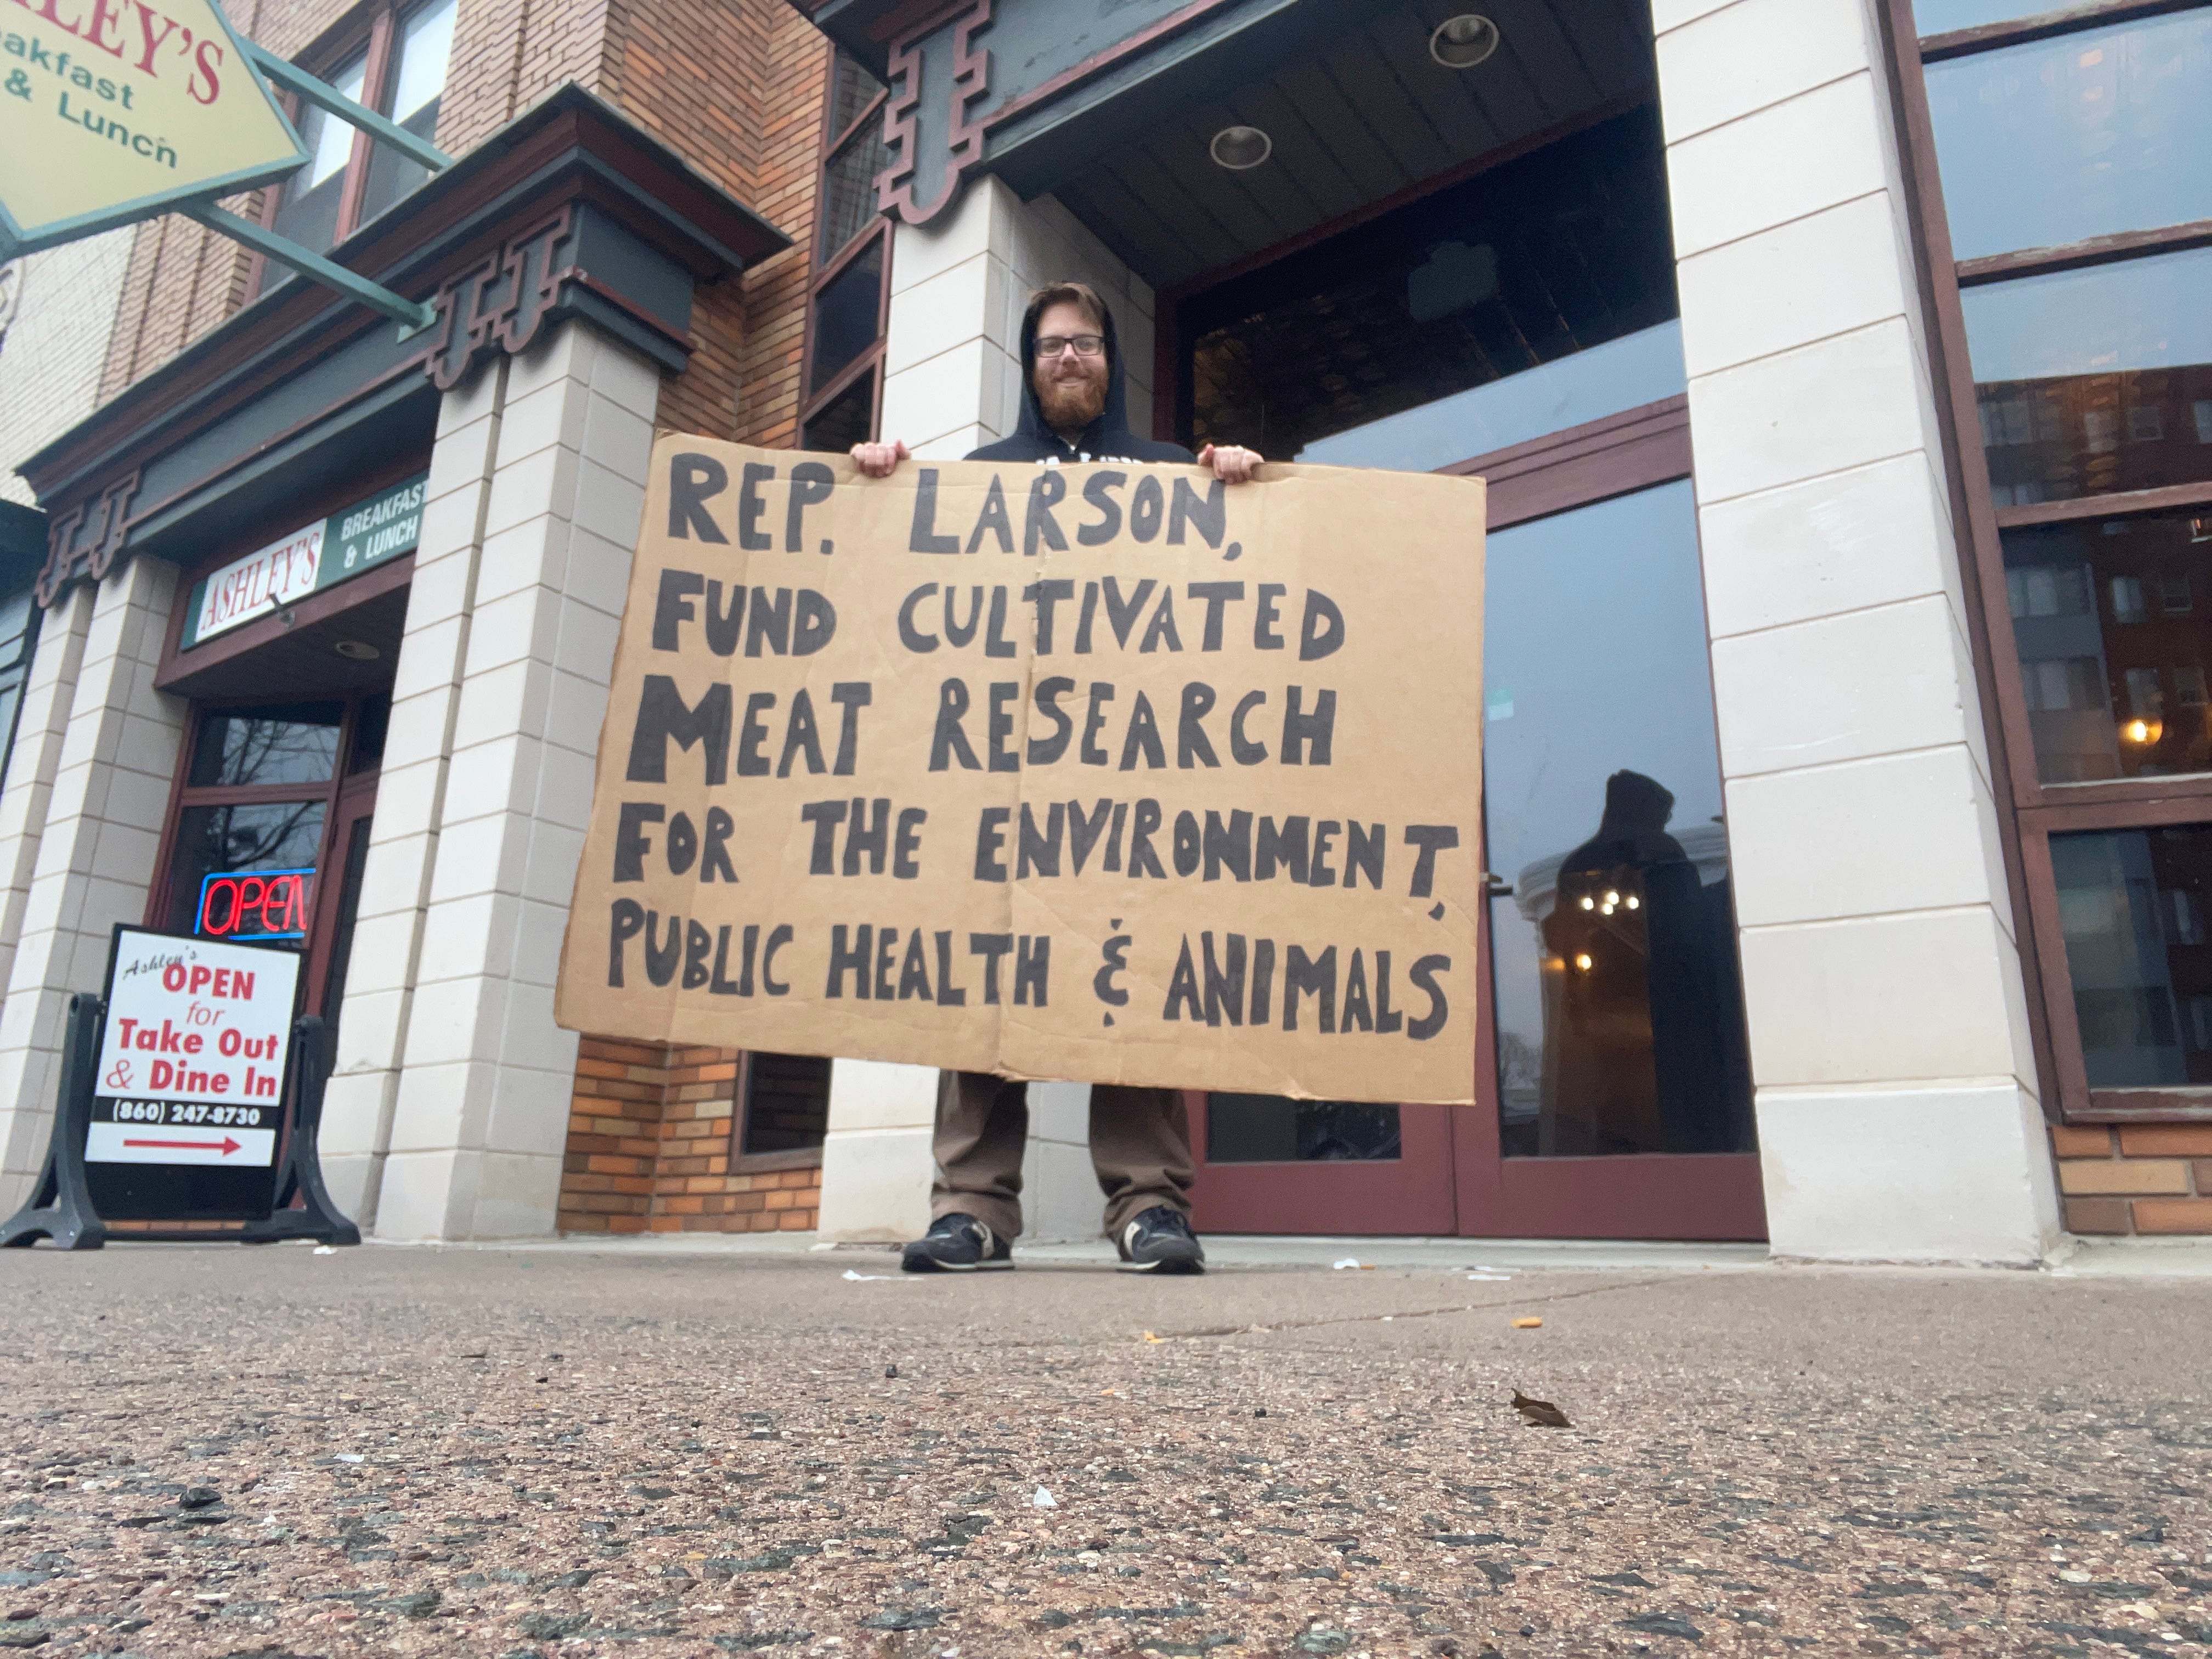 LEY'S
akfast
& Lunch
ASHLEY'S
BREAKFAST
& LUNCH
OPEN
Ashley's
OPEN
for
Take Out
& Dine In
(860) 247-8730
REP. LARSON,
FUND CULTIVATED
MEAT RESEARCH
FOR THE ENVIRONMENT,
PUBLIC HEALTH & ANIMALS